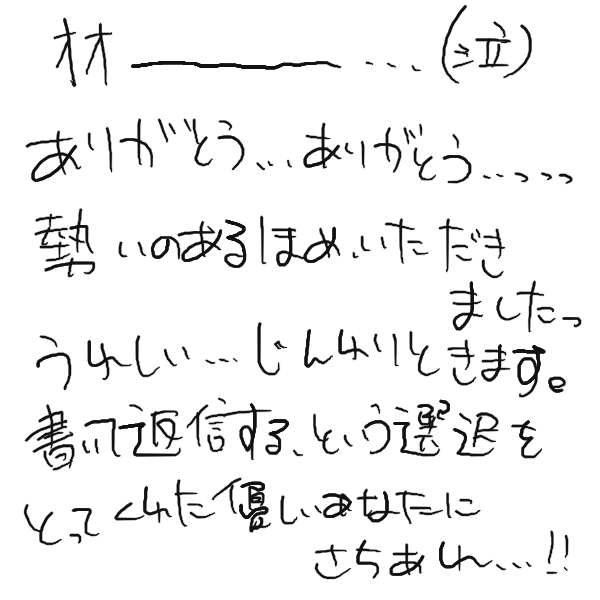 オオ――――…(泣)
ありがとう…ありがとう…っっっ
勢いのあるほめ、いただき
ましたっ
うれしい…じんわりときます。
書いて返信する、という選択を
とってくれた優しいあなたに
さちあれ…!!